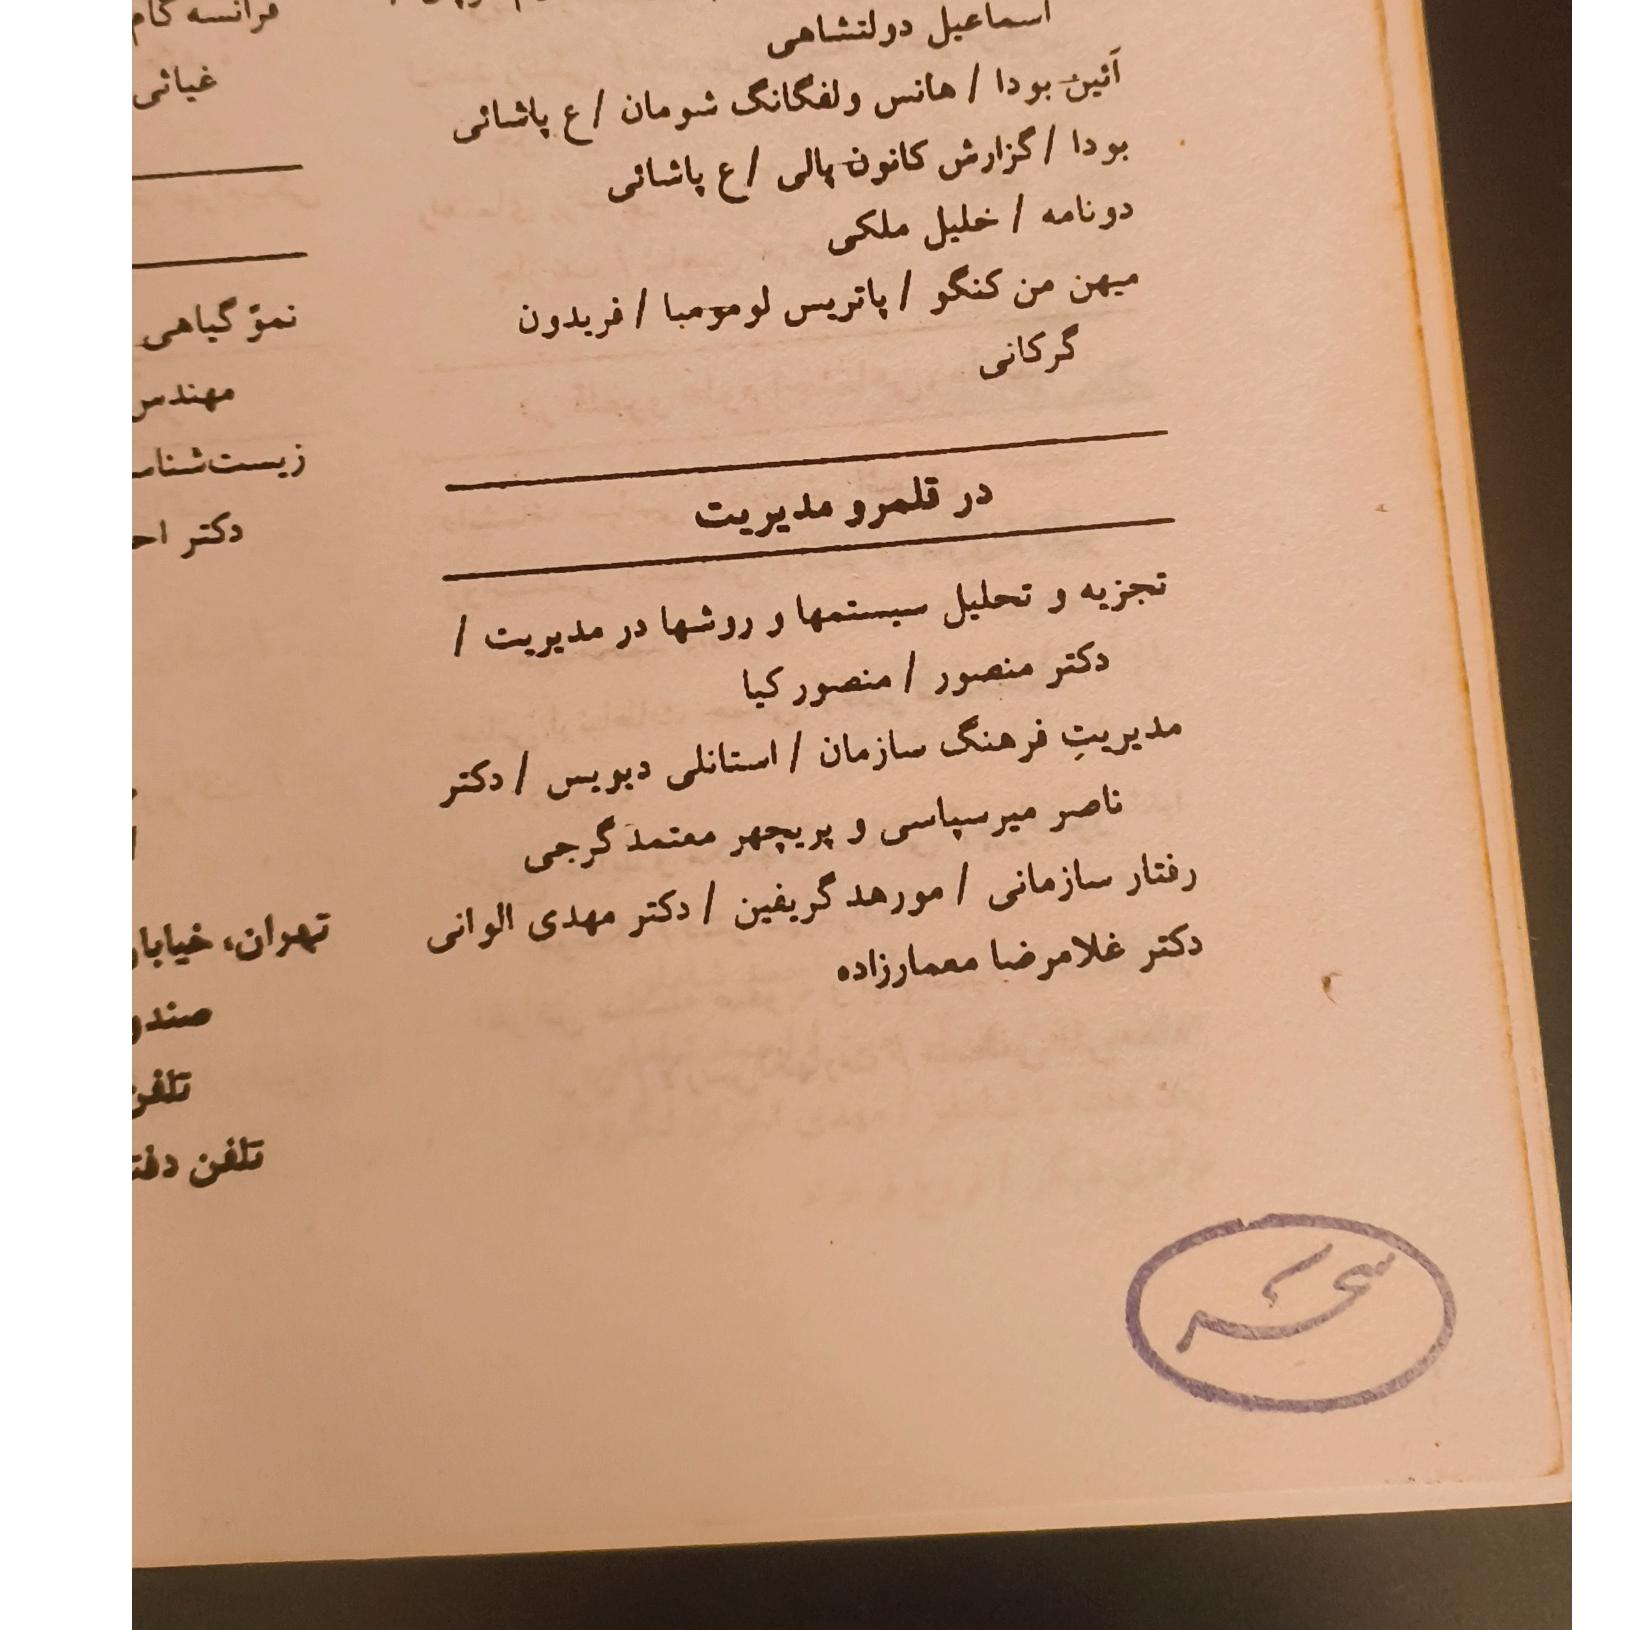 اسماعیل دولتشاهی
آئین بودا / هانس ولفگانگ شومان / ع پاشائی
بودا / گزارش کانون پالی / ع پاشائی
دونامه / خلیل ملکی
میهن من کنگو / پاتریس لومومبا / فریدون
گرکانی
در قلمرو مدیریت
تجزیه و تحلیل سیستمها و روشها در مدیریت /
دکتر منصور / منصور کیا
مدیریتِ فرهنگ سازمان / استانلی دیویس / دکتر
ناصر میرسپاسی و پریچهر معتمد گرجی
رفتار سازمانی / مورهد گریفین / دکتر مهدی الوانی
دکتر غلامرضا معمارزاده
فرانسه
غیاثی
نموّ گیاهی
مهندس
دکتر
تهران،
تلفن